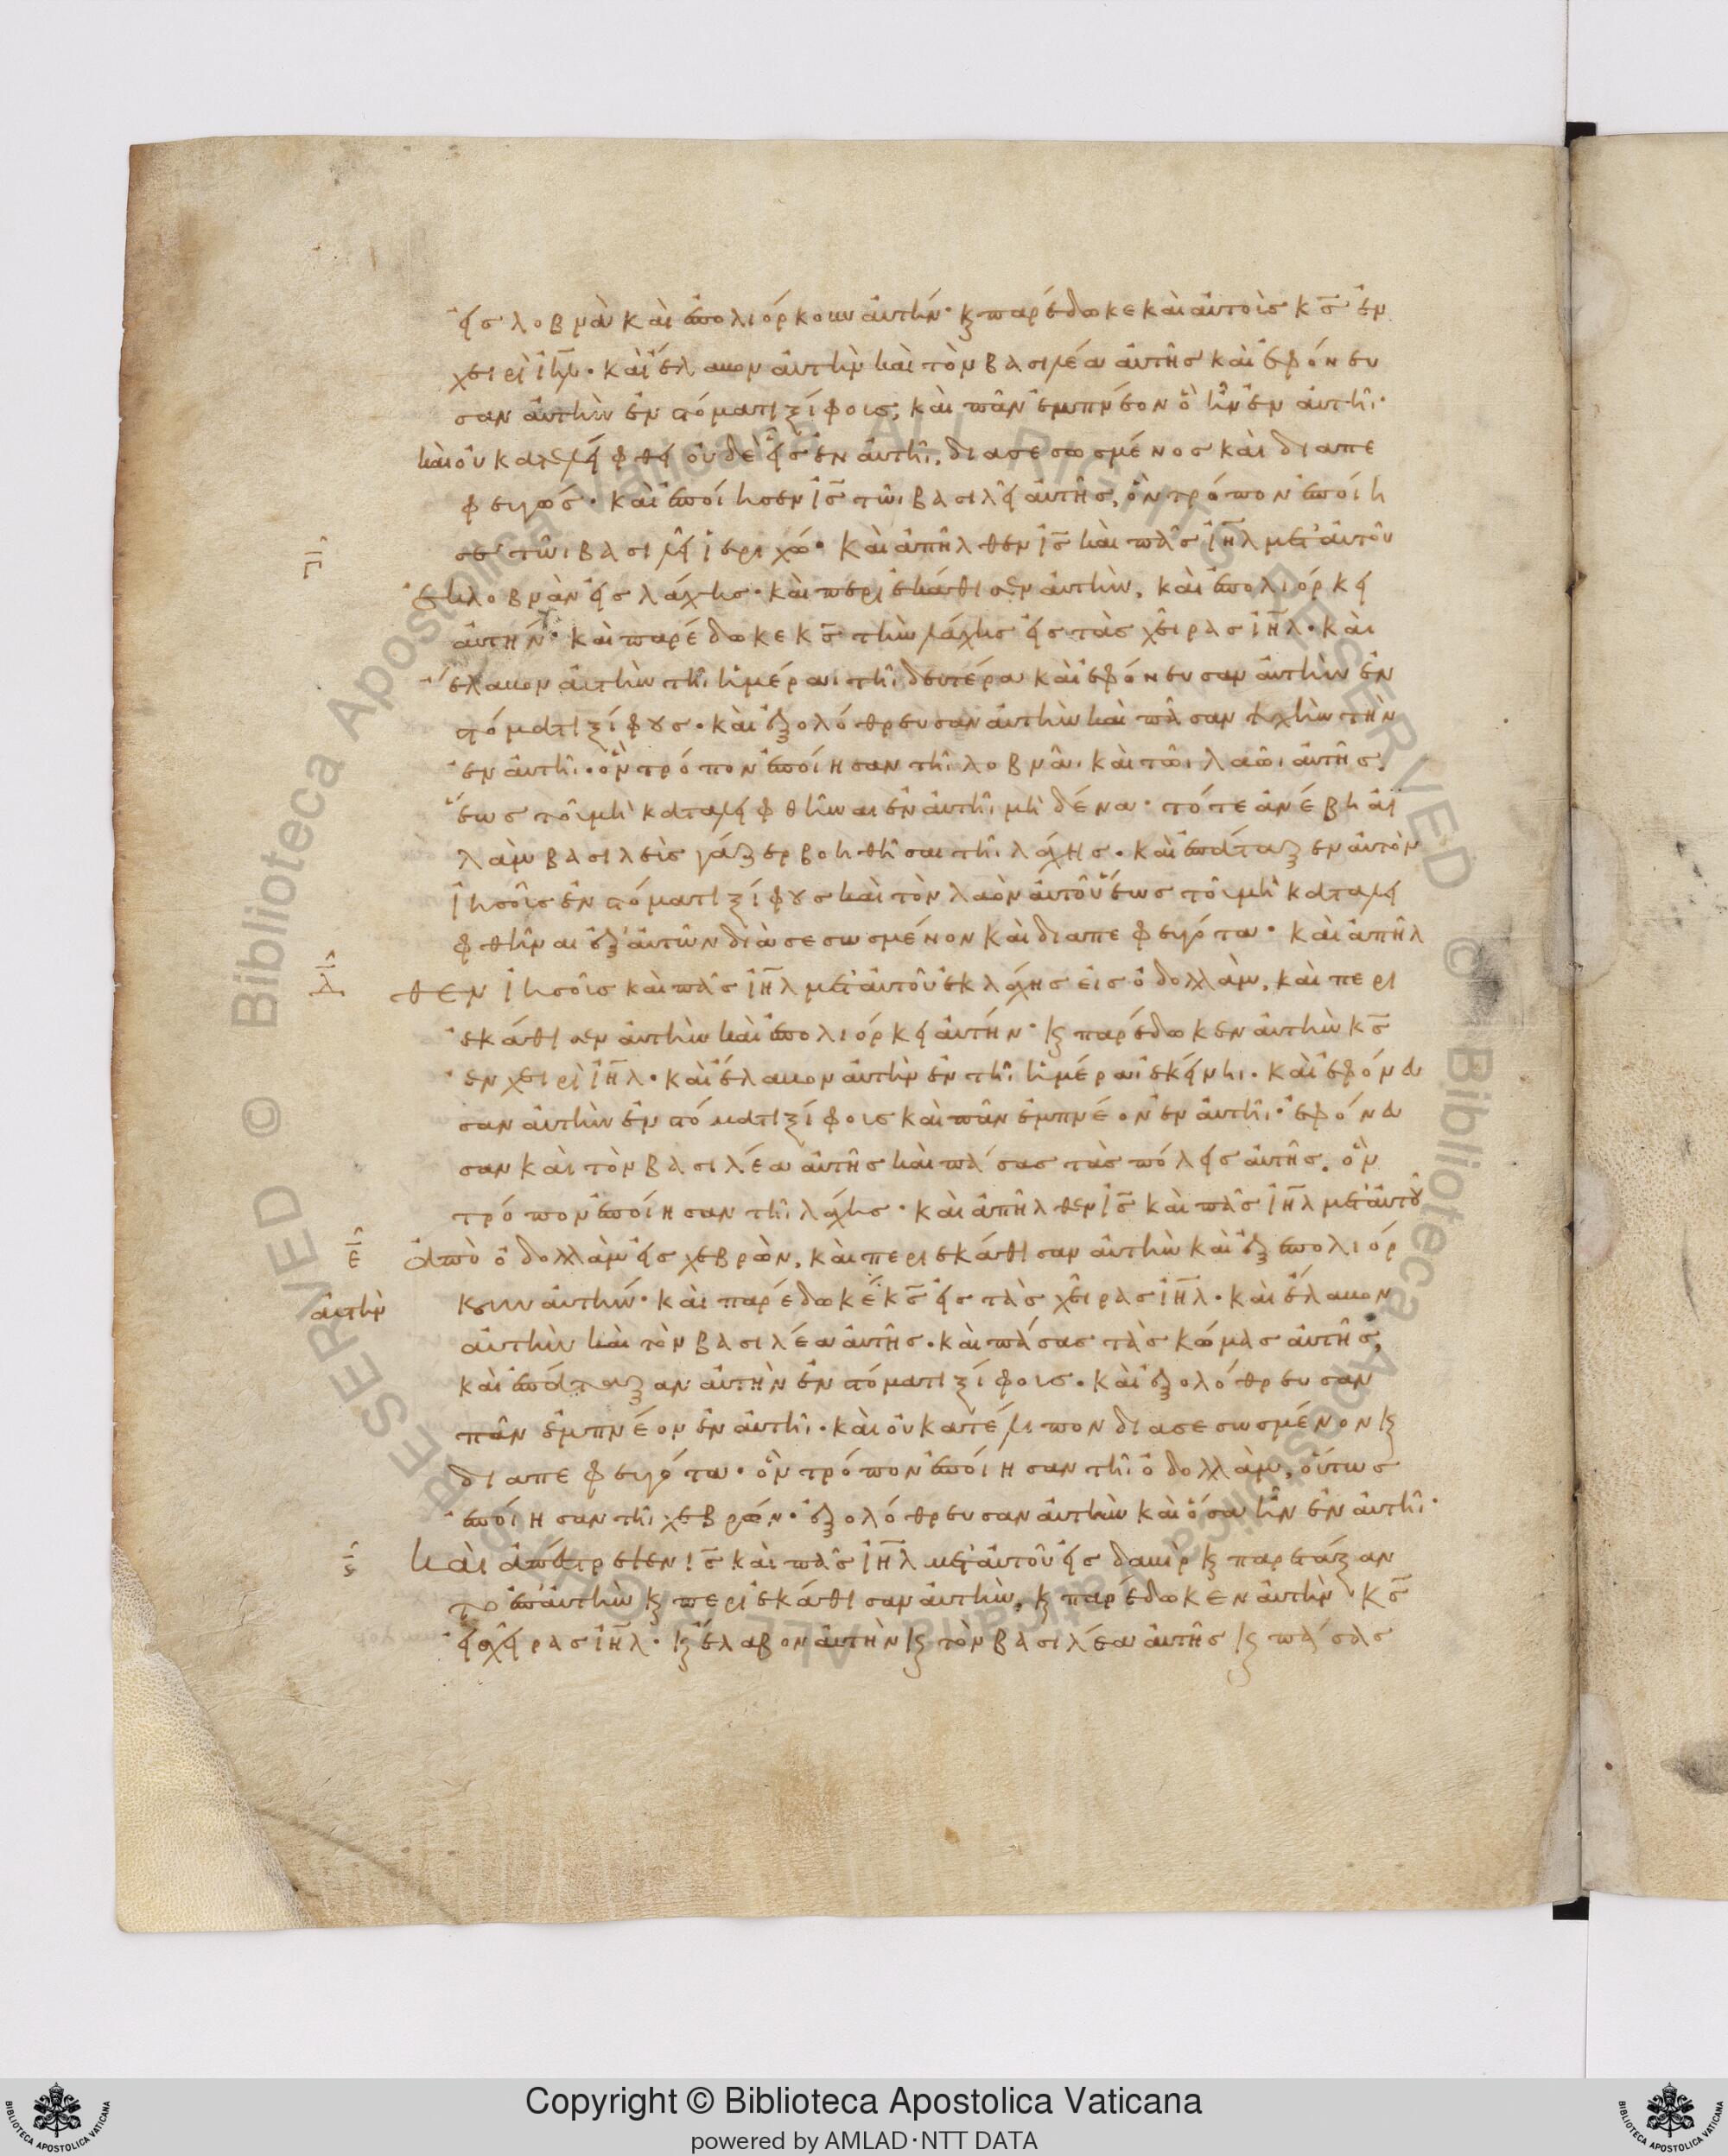 εἰς λοβνὰν καὶ ἐπολιόρκουν αὐτήν· καὶ παρέδωκε καὶ αὐτοὶς κς ἐν
χειρὶ ιηλ· καὶ ἔλαβον αὐτὴν καὶ τὸν βασιλέα αὐτῆς καὶ ἐφόνευ
σαν αὐτὴν ἐν στόματι ξίφους, καὶ πᾶν ἐμπνέον ὃ ἦν ἐν αὐτῆι·
καὶ οὐ κατελείφθει οὐδὲ εἷς ἐν αὐτῆι, διασεσωσμένος καὶ διαπε
φευγώς· καὶ ἐποίησεν ις τῶι βασιλεῖ αὐτῆς, ὃν τρόπον ἐποίη
σε τῶι βασιλεῖ ἱεριχώ· καὶ ἀπῆλθεν ις καὶ πᾶς ιηλ μετ' αὐτοῦ
Γ
ἐκ λοβνὰν εἰς λάχης· καὶ περιεκάθισεν αὐτὴν, καὶ ἐπολιόρκει
αὐτήν· καὶ παρέδωκε κς τὴν λάχης εἰς τὰς χεῖρας ιηλ· καὶ
ἔλαβον αὐτὴν τῆι ἡμέραι τῆι δευτέρα καὶ ἐφόνευσαν αὐτὴν ἐν
στόματι ξίφους· καὶ ἐξολόθρευσαν αὐτὴν καὶ πᾶσαν ψυχὴν τὴν
ἐν αὐτῆι· ὃν τρόπον ἐποίησαν τῆι λοβνᾶι καὶ τῶι λαῶι αὐτῆς,
ἕως τοῦ μὴ καταλειφθῆναι ἐν αὐτῆι μὴ δένα· τότε ἀνέβη αἰ
λὰμ βασιλεὶς γάζερ βοηθῆσαι τῆι λάχης· καὶ ἐπάταξεν αὐτὸν
ἰησοῦς ἐν στόματι ξίφους καὶ τὸν λαὸν αὐτοῦ ἕως τοῦ μὴ καταλει
φθῆναι ἐξ αὐτῶν διασεσωσμένον καὶ διαπεφευγότα· καὶ ἀπῆλ
Δ
θεν ἰησοῦς καὶ πᾶς ιηλ μετ' αὐτοῦ ἐκ λάχης εἰς ὀδολλὰμ, καὶ περι
εκάθισεν αὐτὴν καὶ ἐπολιόρκει αὐτήν· καὶ παρέδωκεν αὐτὴν κς
ἐν χειρὶ ιηλ· καὶ ἔλαβον αὐτὴν ἐν τῆι ἡμέραι ἐκείνηι· καὶ ἐφόνευ
σαν αὐτὴν ἐν στόματι ξίφους καὶ πᾶν ἐμπνέον ἐν αὐτῆι· ἐφόνευ
σαν καὶ τὸν βασιλέα αὐτῆς καὶ πάσας τὰς πόλεις αὐτῆς, ὃν
τρόπον ἐποίησαν τῆι λάχης· καὶ ἀπῆλθεν ις καὶ πᾶς ιηλ μετ' αὐτοῦ
Ε
ἀπὸ ὀδολλὰμ εἰς χεβρὼν, καὶ περιεκάθισαν αὐτὴν καὶ ἐξεπολιόρ
αὐτὴν
κουν αὐτήν· καὶ παρέδωκέ κς εἰς τὰς χεῖρας ιηλ· καὶ ἔλαβον
αὐτὴν καὶ τὸν βασιλέα αὐτῆς· καὶ πάσας τὰς κώμας αὐτῆς,
καὶ ἐπάταξαν αὐτὴν ἐν στόματι ξίφους· καὶ ἐξολόθρευσαν
πᾶν ἐμπνέον ἐν αὐτῆι· καὶ οὐ κατέλιπον διασεσωσμένον καὶ
διαπεφευγότα· ὃν τρόπον ἐποίησαν τῆι ὀδολλὰμ, οὕτως
ἐποίησαν τῆι χεβρών· ἐξολόθρευσαν αὐτὴν καὶ ὅσα ἦν ἐν αὐτῆι·
ς
καὶ ἀπέστρεψεν ις καὶ πᾶς ιηλ μετ' αὐτοῦ εἰς δαβὶρ καὶ παρετάξαν
το ἐπ' αὐτὴν καὶ περιεκάθισαν αὐτὴν, καὶ παρέδωκεν αὐτὴν κς
εἰς χεῖρας ιηλ· καὶ ἔλαβον αὐτὴν καὶ τὸν βασιλέα αὐτῆς καὶ πάσας
Copyright © Biblioteca Apostolica Vaticana
powered by AMLAD·NTT DATA